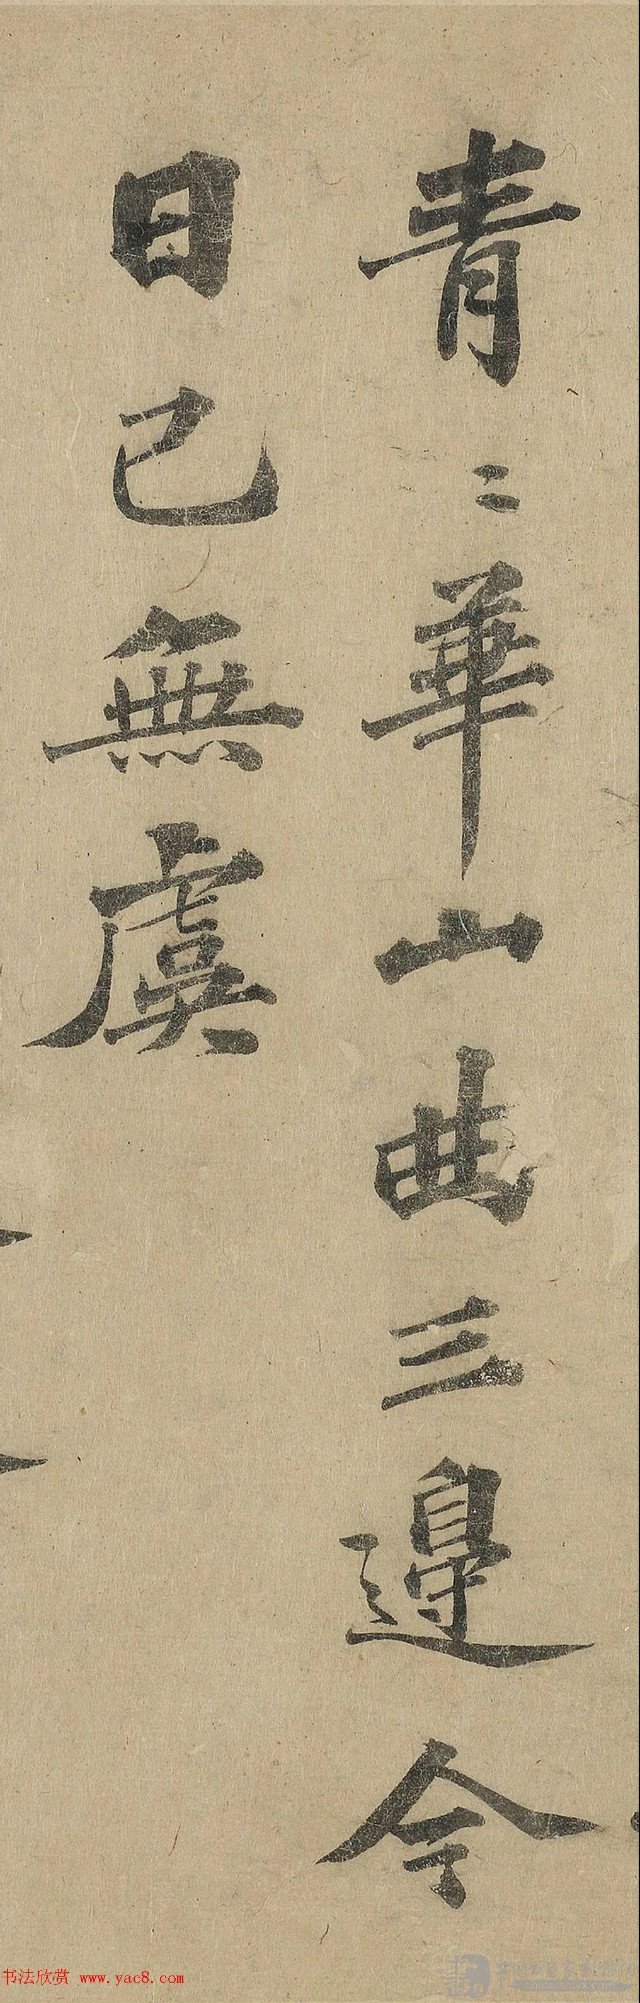 青〻華山曲三邉今
日已無虞
书法欣赏 www.yac8.com